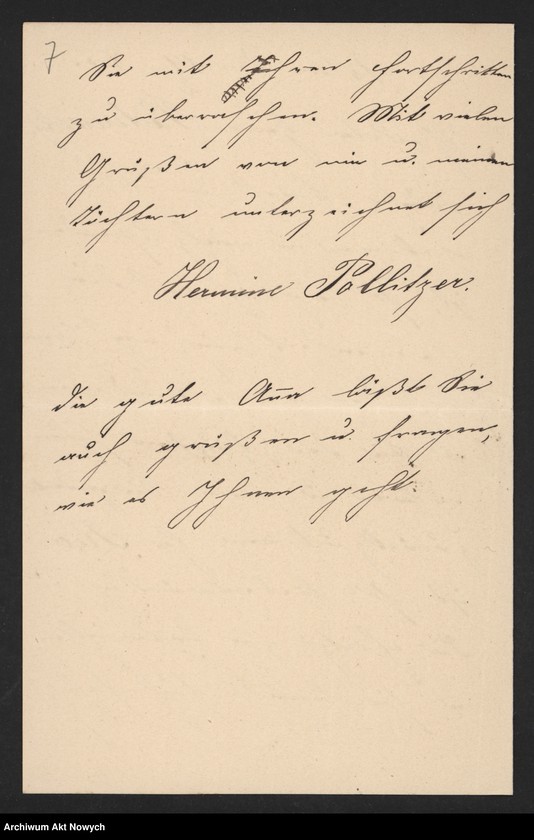 7
Sie mit Ihren Fortschritten
zu überraschen. Mit vielen
Grüßen von mir u. meinen
Töchtern unterzeichnet sich
Hermine Pollitzer.
die gute Anna läßt Sie
auch grüßen u. fragen,
wie es Ihnen geht.
Archiwum Akt Nowych